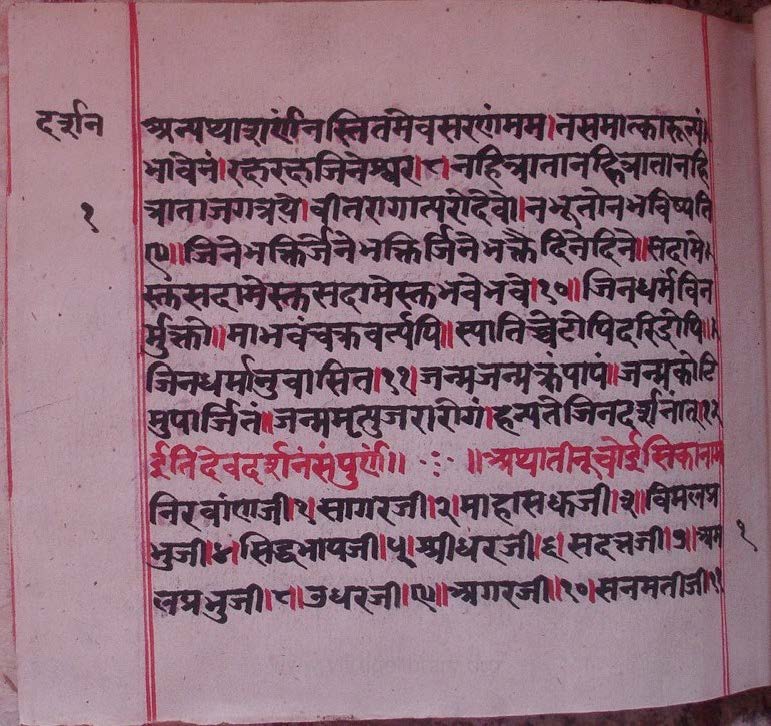 दर्शन
१
अन्यथाशर्णंनस्तितमेवसरणंमम।नसमात्कारून्यं।
भावेनं।रक्षरक्षजिनेश्वर।८।नहित्रातानहित्रातानहि
त्राताजगत्रये।वीतरागात्परोदेवो।नभूतोनभविष्यति
९॥जिनेभक्तिर्जिनेभक्तिर्जिनेभक्तैदिनेदिने॥सदामे।
स्क्तसदामेस्क्तसदामेस्क्तभवेभवे।१०॥जिनधर्मविन
र्मुक्तो॥माभवंचक्रवर्त्यपि॥स्यातिच्चेटोपिदरिद्रोपि॥
जिनधर्मानुवासित।११।जन्मजन्मक्रंपापं॥जन्मकोटि
मुपार्जिनं॥जन्ममृत्युजरारोगं।हन्यतेजिनदर्शनात्।१२
ईतिदेवदर्शनसंपुर्णं॥ ॥अथातीनूचोईस्तिकानाम
निरवांणजी।१।सागरजी।२।माहासधजी।३॥विमलप्र
भुजी।४।सिद्धभापजी।५।श्रीधरजी।६।सदत्तजी।७॥अम
लप्रभुजी।८।उधरजी।९॥अगरजी॥१०।सनमतीजी।११
१